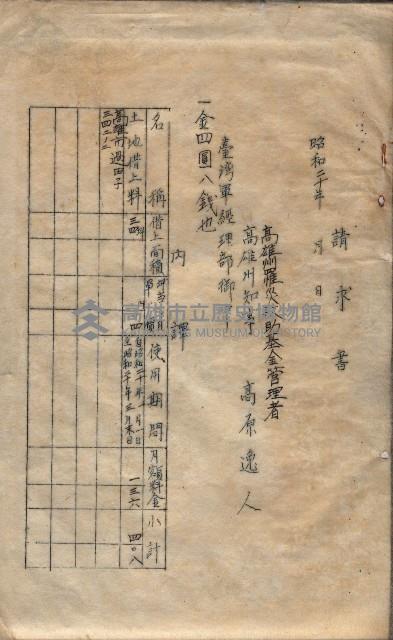 請求書
昭和二十年　月　日
高雄州罹災救助基金管理者
高雄州知事　高原逸人
臺灣軍經理部御中
一金四圓八錢也
内譯
名稱
借上面積
坪当月
使用期間
月額料金
小計
土地借上料
高雄市過田子
三四二ノ二
三四坪
四
自昭和二十年一月一日
至昭和二十年三月末日
一三六
四〇八
高雄市立歷史博物館
KAOHSIUNG MUSEUM OF HISTORY